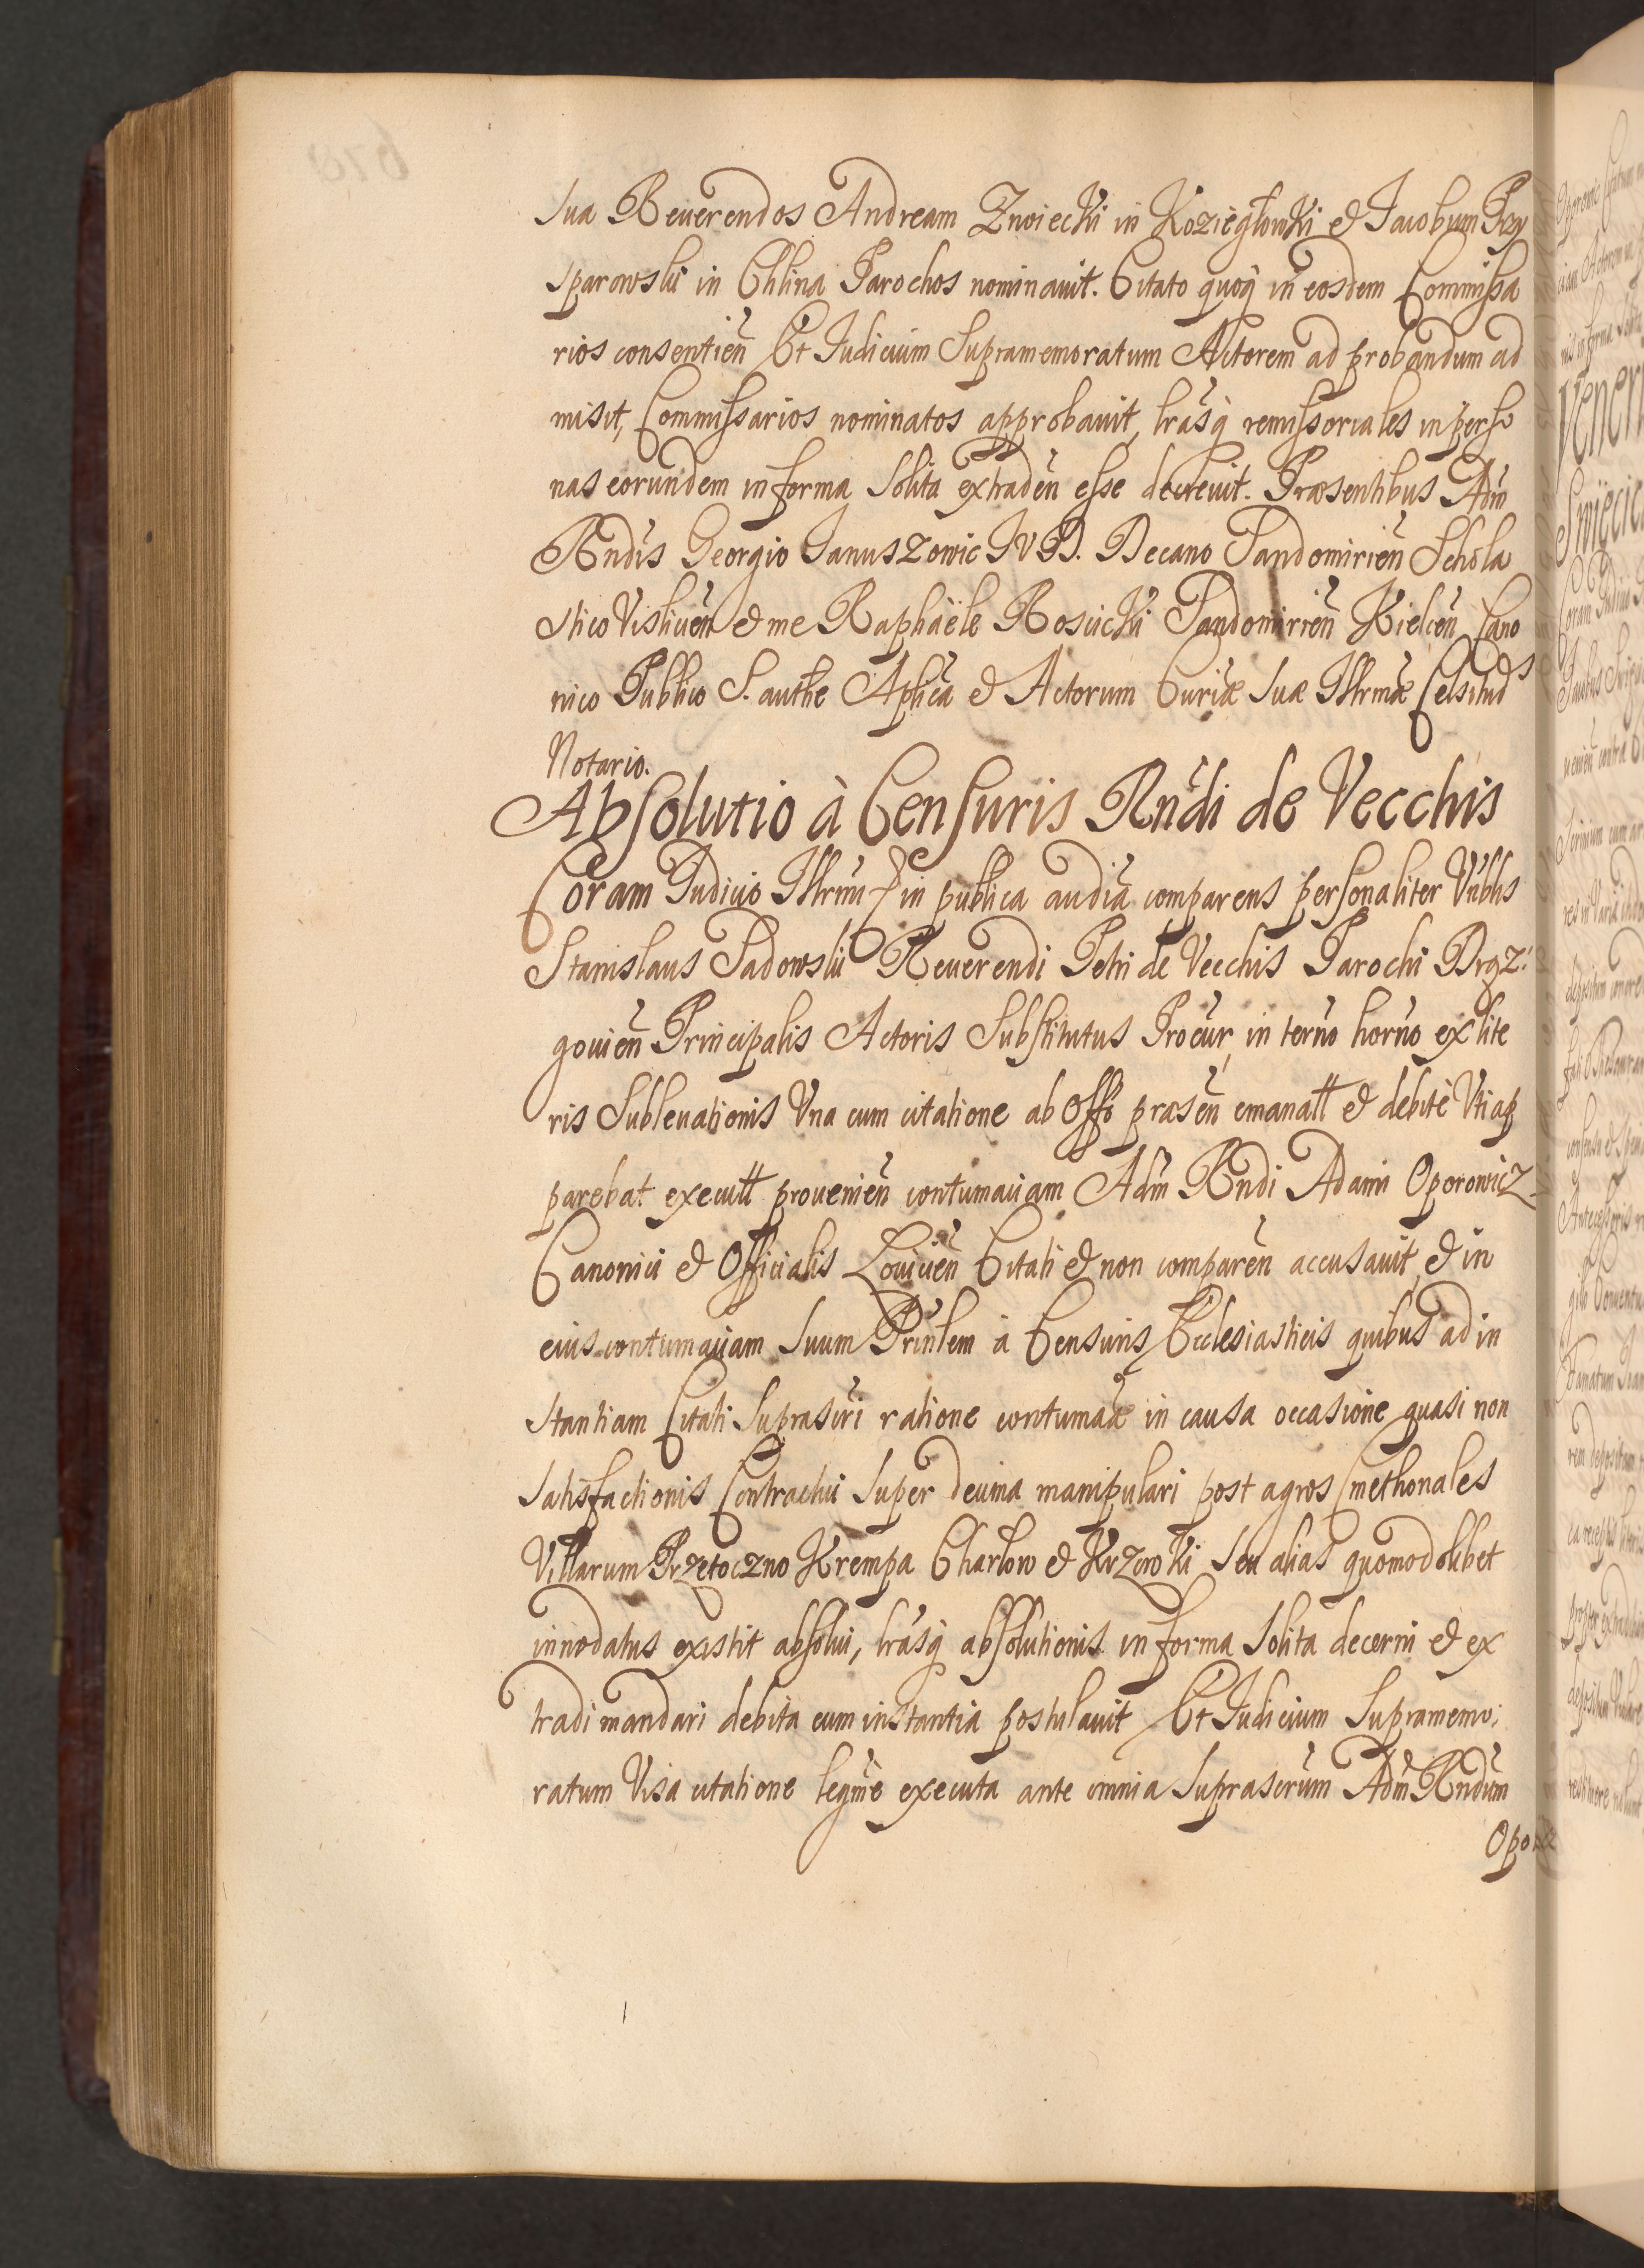 sua Reuerendos Andream Zwiecki in Koziegłowki & Iacobum Przy
sparowski in Chlina Parochos nominauit. Citato quoq̃ in eosdem Commissa
rios consentien̄ Et Iudicium Supramemoratum Actorem ad probandum ad
misit, Commissarios nominatos approbauit, lr̃asq̃ remissoriales in perso
nas eorundem in forma solita extraden̄ esse decreuit. Præsentibus Adm̄
Rndis Georgio Januszowic IVD. Decano Sandomirien̄ Schola
stico Vislicien̄ & me Raphaele Rosicki Sandomirien̄ Kielcen̄ Cano
nico Publico S. autħe Aplica & Actorum Curiæ suæ Illrmæ Celsitud
Notario.
Absolutio à Censuris Rndi de Vecchis
Coram Iudicio Illrmi & in publica audia comparens personaliter Vnblis
Stanislaus Sadowski Reuerendi Petri de Vecchis Parochi
gouien̄ Principalis Actoris Substitutus Procur̄, in term̄o hor̄no ex lite
ris Subleuationis Vna cum citatione ab Offo præsen̄ emanatt & debite Vti ap
parebat executt prouenien̄ contumaciam Adm̄ Rndi Adami Oporowicz
Canonici & Officialis Louicien̄ Citati & non comparen̄ accusauit, & in
eius contumaciam suum Prinlem à Censuris Ecclesiasticis quibus ad in
stantiam Citati Suprascri ratione contumaæ in causa occasione quasi non
satisfactionis Contractui super decima manipulari post agros Cmethonales
Villarum Przetoczno Krempa Charłow & Krzowki seu alias quomodolibet
innodatus existit absolui, lr̃asq̃ absolutionis in forma solita decerni & ex
tradi mandari debita cum instantia postulauit Et Iudicium Supramemo:
ratum Visa citatione legme executa ante omnia Suprascrum Adm̄ Rndum
Opo